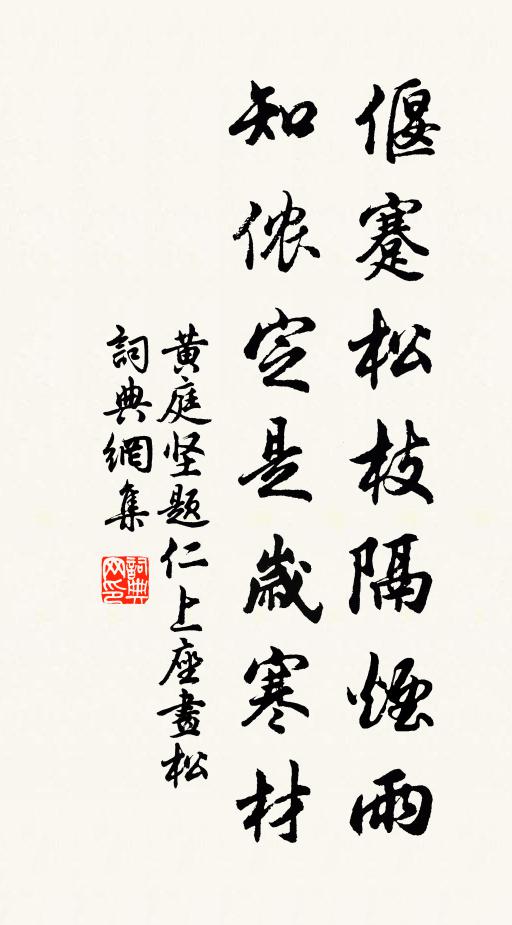 偃蹇松枝隔煙雨
知侬定是歲寒材
黄庭坚题仁上座畫松
詞典網集
詞典网印